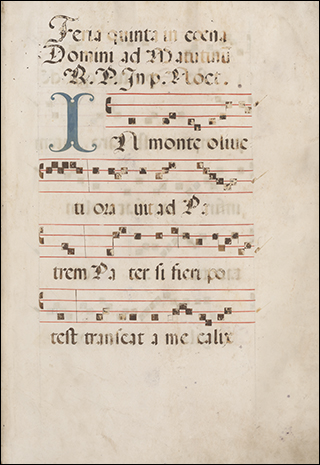 Feria quinta in coena
Domini ad Matutinū
R. P. In p. Noct.
IN monte oliue
ti ora uit ad Pa
trem Pa ter si fieri po
test transeat a me calix